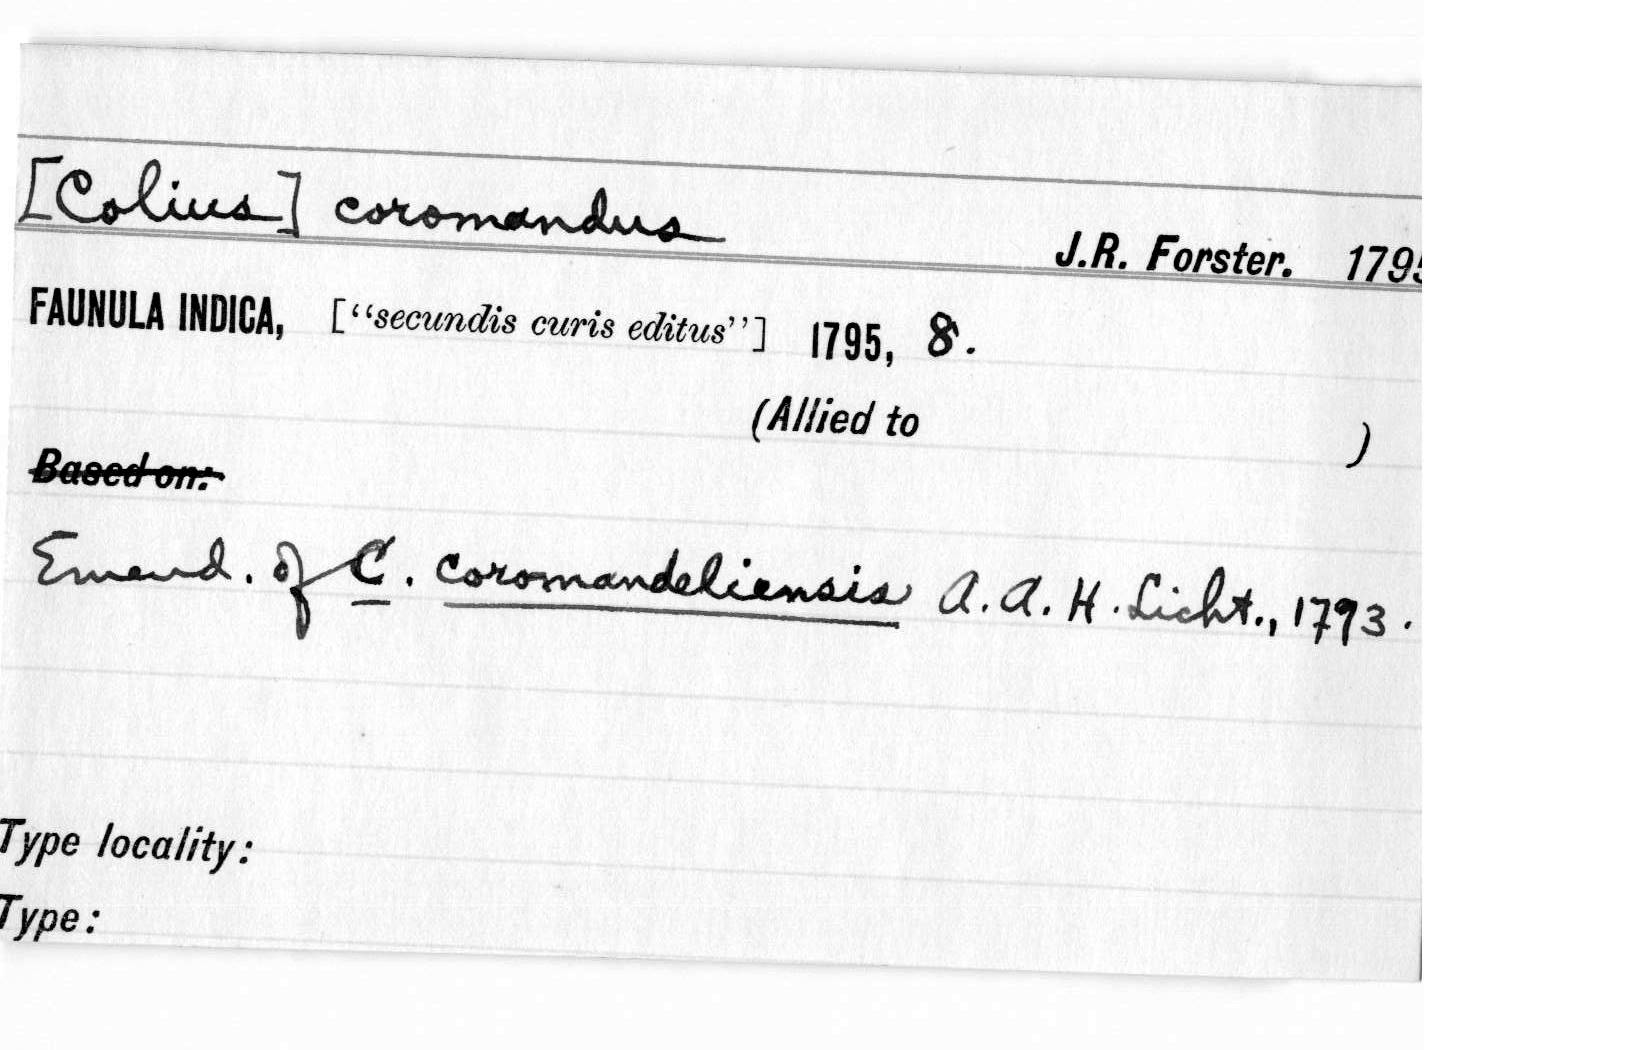 [Colius] coromandus
J.R. Forster. 1795
FAUNULA INDICA, [“secundis curis editus”] 1795, 8.
(Allied to )
Based on:
Emend. of C. coromandeliensis A. A. H. Licht., 1793.
Type locality:
Type: